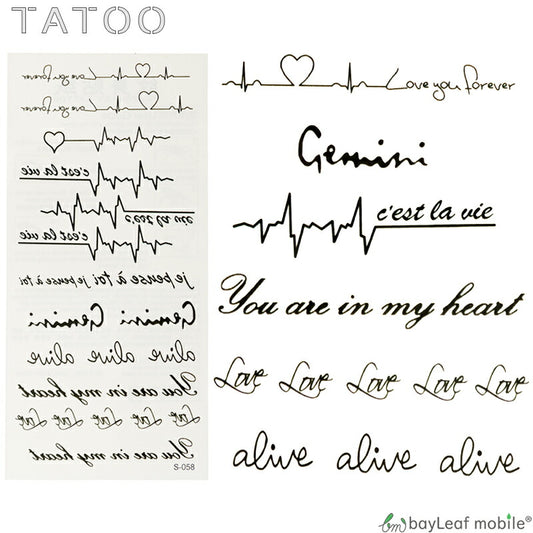 TATOO
Love you forever
Love you forever
c'est la vie
c'est la vie
je pense à toi je pense à toi
Gemini Gemini
alive alive alive
You are in my heart
Love Love Love Love Love
You are in my heart
S-058
Love you forever
Gemini
c'est la vie
You are in my heart
Love Love Love Love Love
alive alive alive
bm bayLeaf mobile®